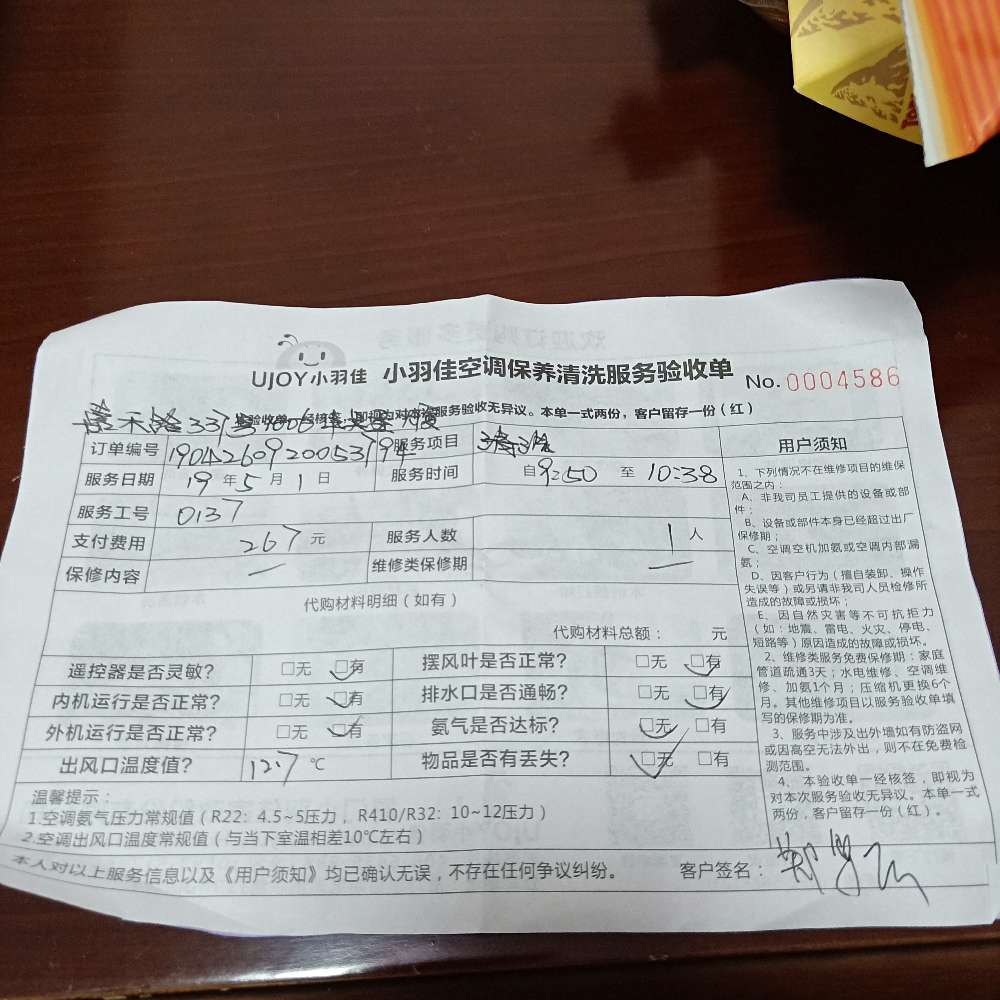 UJOY小羽佳 小羽佳空调保养清洗服务验收单 No. 0004586
对本次服务验收无异议。本单一式两份，客户留存一份（红）
订单编号 服务项目
服务日期 19 年 5 月 1 日 服务时间 自 9:50 至 10:38
服务工号 0137
支付费用 267 元 服务人数 1 人
保修内容 — 维修类保修期 —
代购材料明细（如有）
代购材料总额： 元
遥控器是否灵敏? □无 □有 摆风叶是否正常? □无 □有
内机运行是否正常? □无 □有 排水口是否通畅? □无 □有
外机运行是否正常? □无 □有 氨气是否达标? □无 □有
出风口温度值? 12.7 ℃ 物品是否有丢失? □无 □有
温馨提示：
1.空调氨气压力常规值（R22：4.5~5压力， R410/R32：10~12压力）
2.空调出风口温度常规值（与当下室温相差10℃左右）
本人对以上服务信息以及《用户须知》均已确认无误，不存在任何争议纠纷。 客户签名：
用户须知
1、下列情况不在维修项目的维保
范围之内：
A、非我司员工提供的设备或部
件；
B、设备或部件本身已经超过出厂
保修期；
C、空调空机加氨或空调内部漏
氨；
D、因客户行为（擅自装卸、操作
失误等）或另请非我司人员检修所
造成的故障或损坏；
E、因自然灾害等不可抗拒力
（如：地震、雷电、火灾、停电、
短路等）原因造成的故障或损坏。
2、维修类服务免费保修期：家庭
管道疏通3天；水电维修、空调维
修、加氨1个月；压缩机更换6个
月。其他维修项目以服务验收单填
写的保修期为准。
3、服务中涉及出外墙如有防盗网
或因高空无法外出，则不在免费检
测范围。
4、本验收单一经核签，即视为
对本次服务验收无异议。本单一式
两份，客户留存一份（红）。